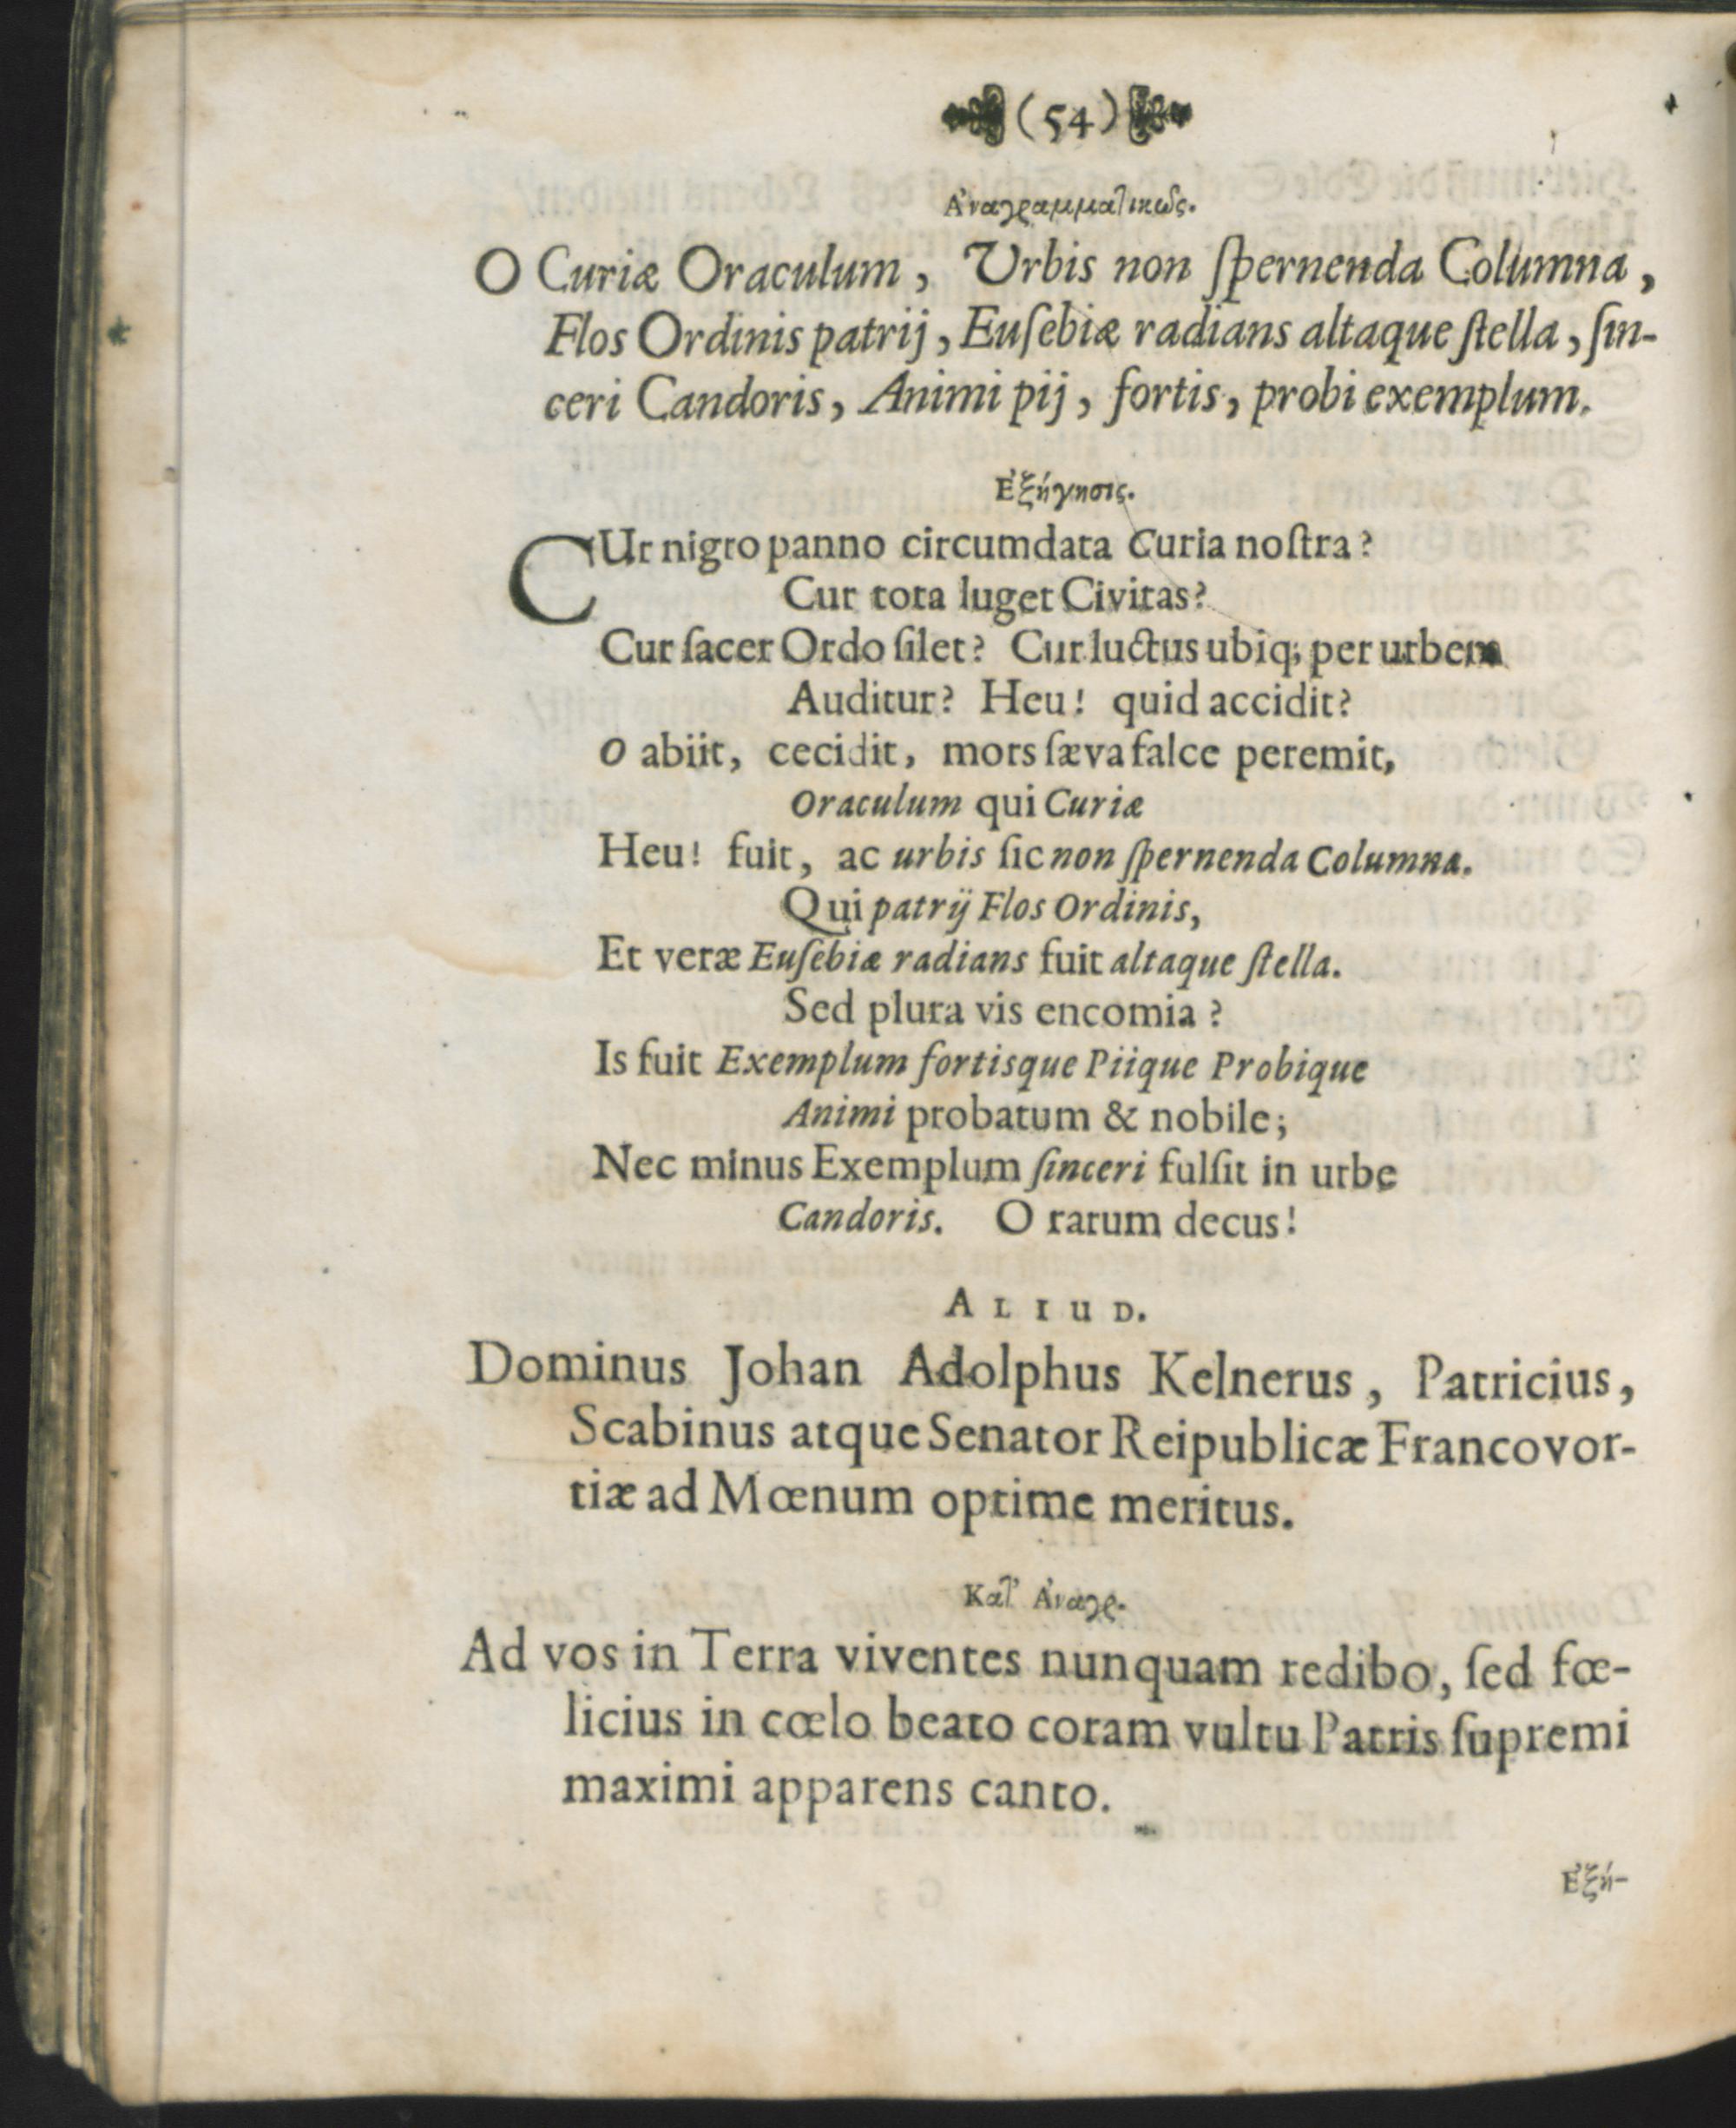 (54)
Ἀναγραμματικῶς.
O Curiæ Oraculum, Urbis non ſpernenda Columna,
Flos Ordinis patrij, Euſebiæ radians altaque ſtella, ſin-
ceri Candoris, Animi pij, fortis, probi exemplum.
Ἐξήγησις.
CUr nigro panno circumdata Curia noſtra?
Cur tota luget Civitas?
Cur ſacer Ordo ſilet? Cur luctus ubiq; per urbem
Auditur? Heu! quid accidit?
O abiit, cecidit, mors ſæva falce peremit,
Oraculum qui Curiæ
Heu! fuit, ac urbis ſic non ſpernenda Columna.
Qui patrij Flos Ordinis,
Et veræ Euſebiæ radians fuit altaque ſtella.
Sed plura vis encomia?
Is fuit Exemplum fortisque Piique Probique
Animi probatum & nobile;
Nec minus Exemplum ſinceri fulſit in urbe
Candoris. O rarum decus!
ALIUD.
Dominus Johan Adolphus Kelnerus, Patricius,
Scabinus atque Senator Reipublicæ Francovor-
tiæ ad Mœnum optime meritus.
Κατ' Ἀναγρ.
Ad vos in Terra viventes nunquam redibo, ſed fœ-
licius in cœlo beato coram vultu Patris ſupremi
maximi apparens canto.
Ἐξή-